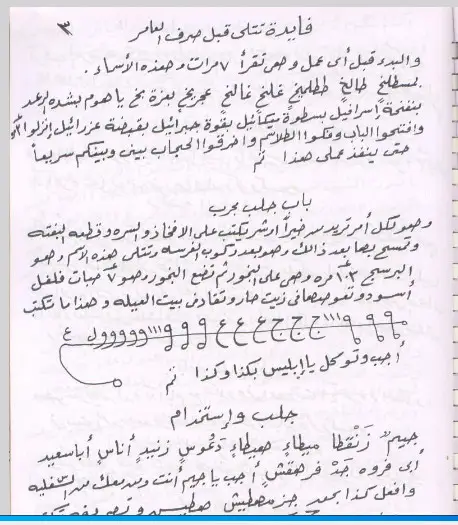 ٣
فايدة تتلى قبل صرف العامر
والبدء قبل أى عمل وهى تقرأ ٧ مرات وهذه الأسماء.
لمسطلخ طالخ طلطليخ غلخ غالخ عجريخ بعزة بخ ياهوم بشده لرعد
بنفخة إسرافيل بسطوة ميكائيل بقوة جبرائيل بقبضة عزرائيل إنزلوا
وافتحوا الباب وفكوا الطلاسم واخرقوا الحجاب بينى وبينكم سريعاً
حتى ينفذ عملى هذا تم
باب جلب مجرب
وهو لكل أمر تريد من خيراً أو شر يكتب على الافخاذ والسره وقطعه البفته
وتمسح بها بعد ذالك وهو بعد ركوب الفرسه وتتلى هذه الاسم وهو
البرسبح ١٠٣ مره وهى على البخور ثم تضع البخور وهو ٧ حبات فلفل
أسود وتغوصها فى زيت حار وتقاد فى بيت العيله وهذا ما تكتب
٩ ٩ ٩ ١١١ ج ج ج ع ع ع و و و ١١١ و و و و و ل ع
أجب وتوكل يا إبليس بكذا وكذا تم
جلب وإستخدام
جيم زنقطا ميطاء هيطاء دغموس زنيد أناس أباسعيد
أبى فروه جد فرهقش أجب ياجيم أنت ومن معك من السفليه
وافعل كذا بحق جز مهطيش هطيس